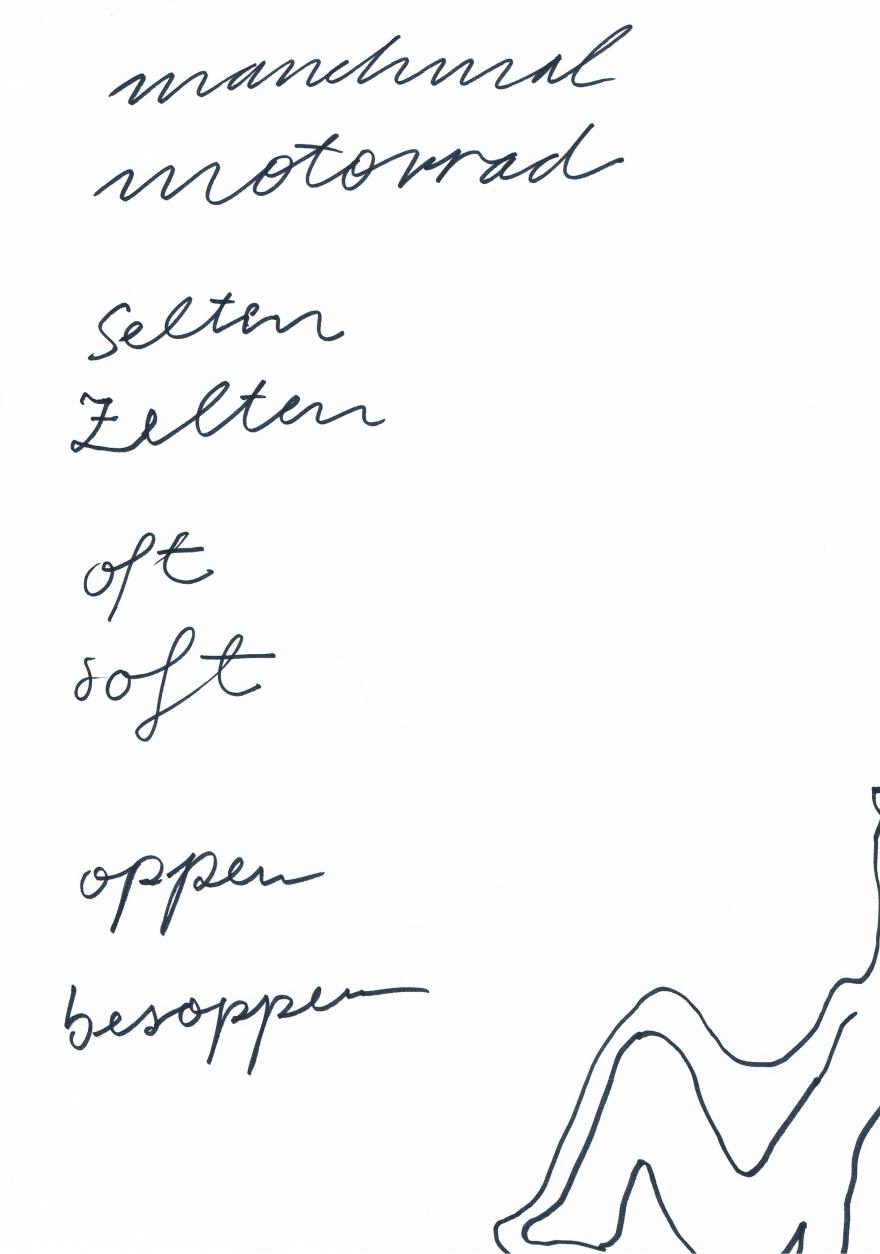 manchmal
motorrad
Selten
Zelten
oft
soft
oppen
besoppen